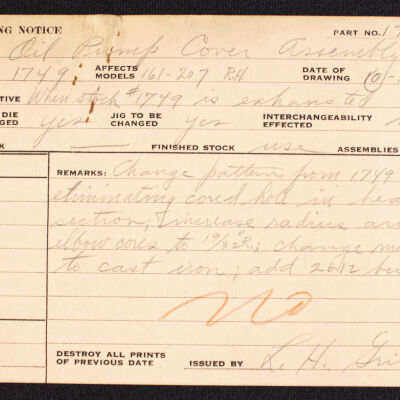 NG NOTICE PART NO. 17
Oil Pump Cover Assembly
1749 AFFECTS MODELS 161-207 RH DATE OF DRAWING 10-
TIVE When stock #1749 is exhausted
DIE GED yes JIG TO BE CHANGED yes INTERCHANGEABILITY EFFECTED
K — FINISHED STOCK use ASSEMBLIES
REMARKS: Change pattern from 1749
eliminating cored hole in hea
section; increase radius an
elbow cores to 19/32"R.; change ma
to cast iron; add 2612 bu
NO
DESTROY ALL PRINTS
OF PREVIOUS DATE ISSUED BY L. H. Gri